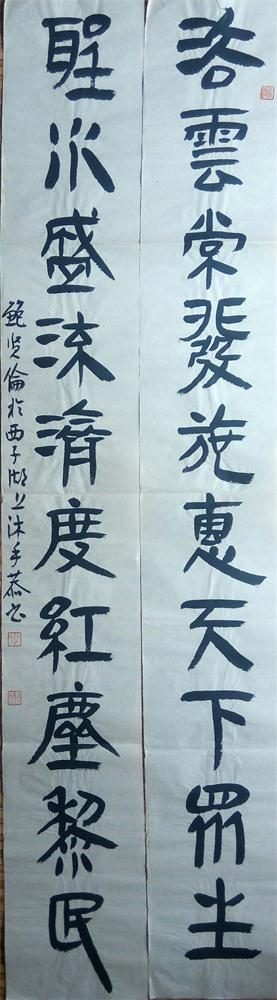 雲常發施惠天下眾生
聖水盛流濟度紅塵黎民
鲍贤倫於西子湖上沐手恭书